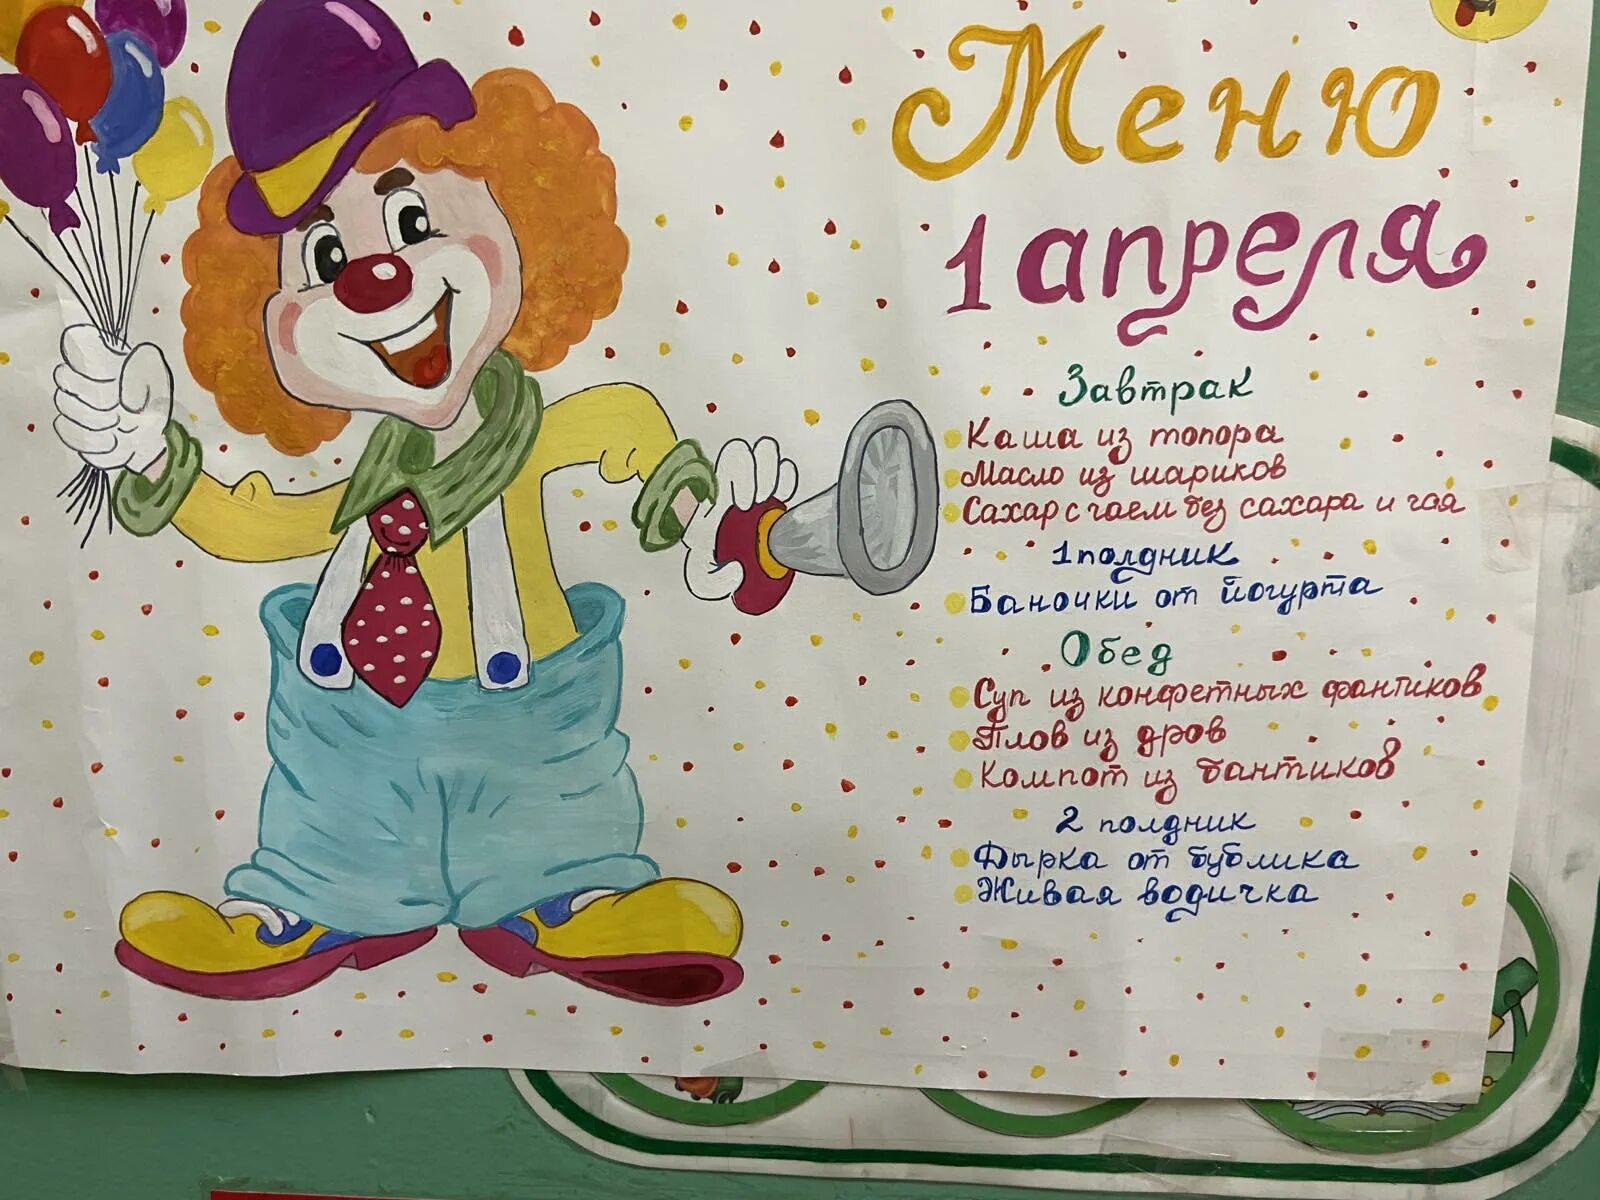 Меню
1 апреля
Завтрак
Каша из топора
Масло из шариков
Сахар с чаем без сахара и чая
1 полдник
Баночки от йогурта
Обед
Суп из конфетных фантиков
Плов из дров
Компот из бантиков
2 полдник
Дырка от бублика
Живая водичка